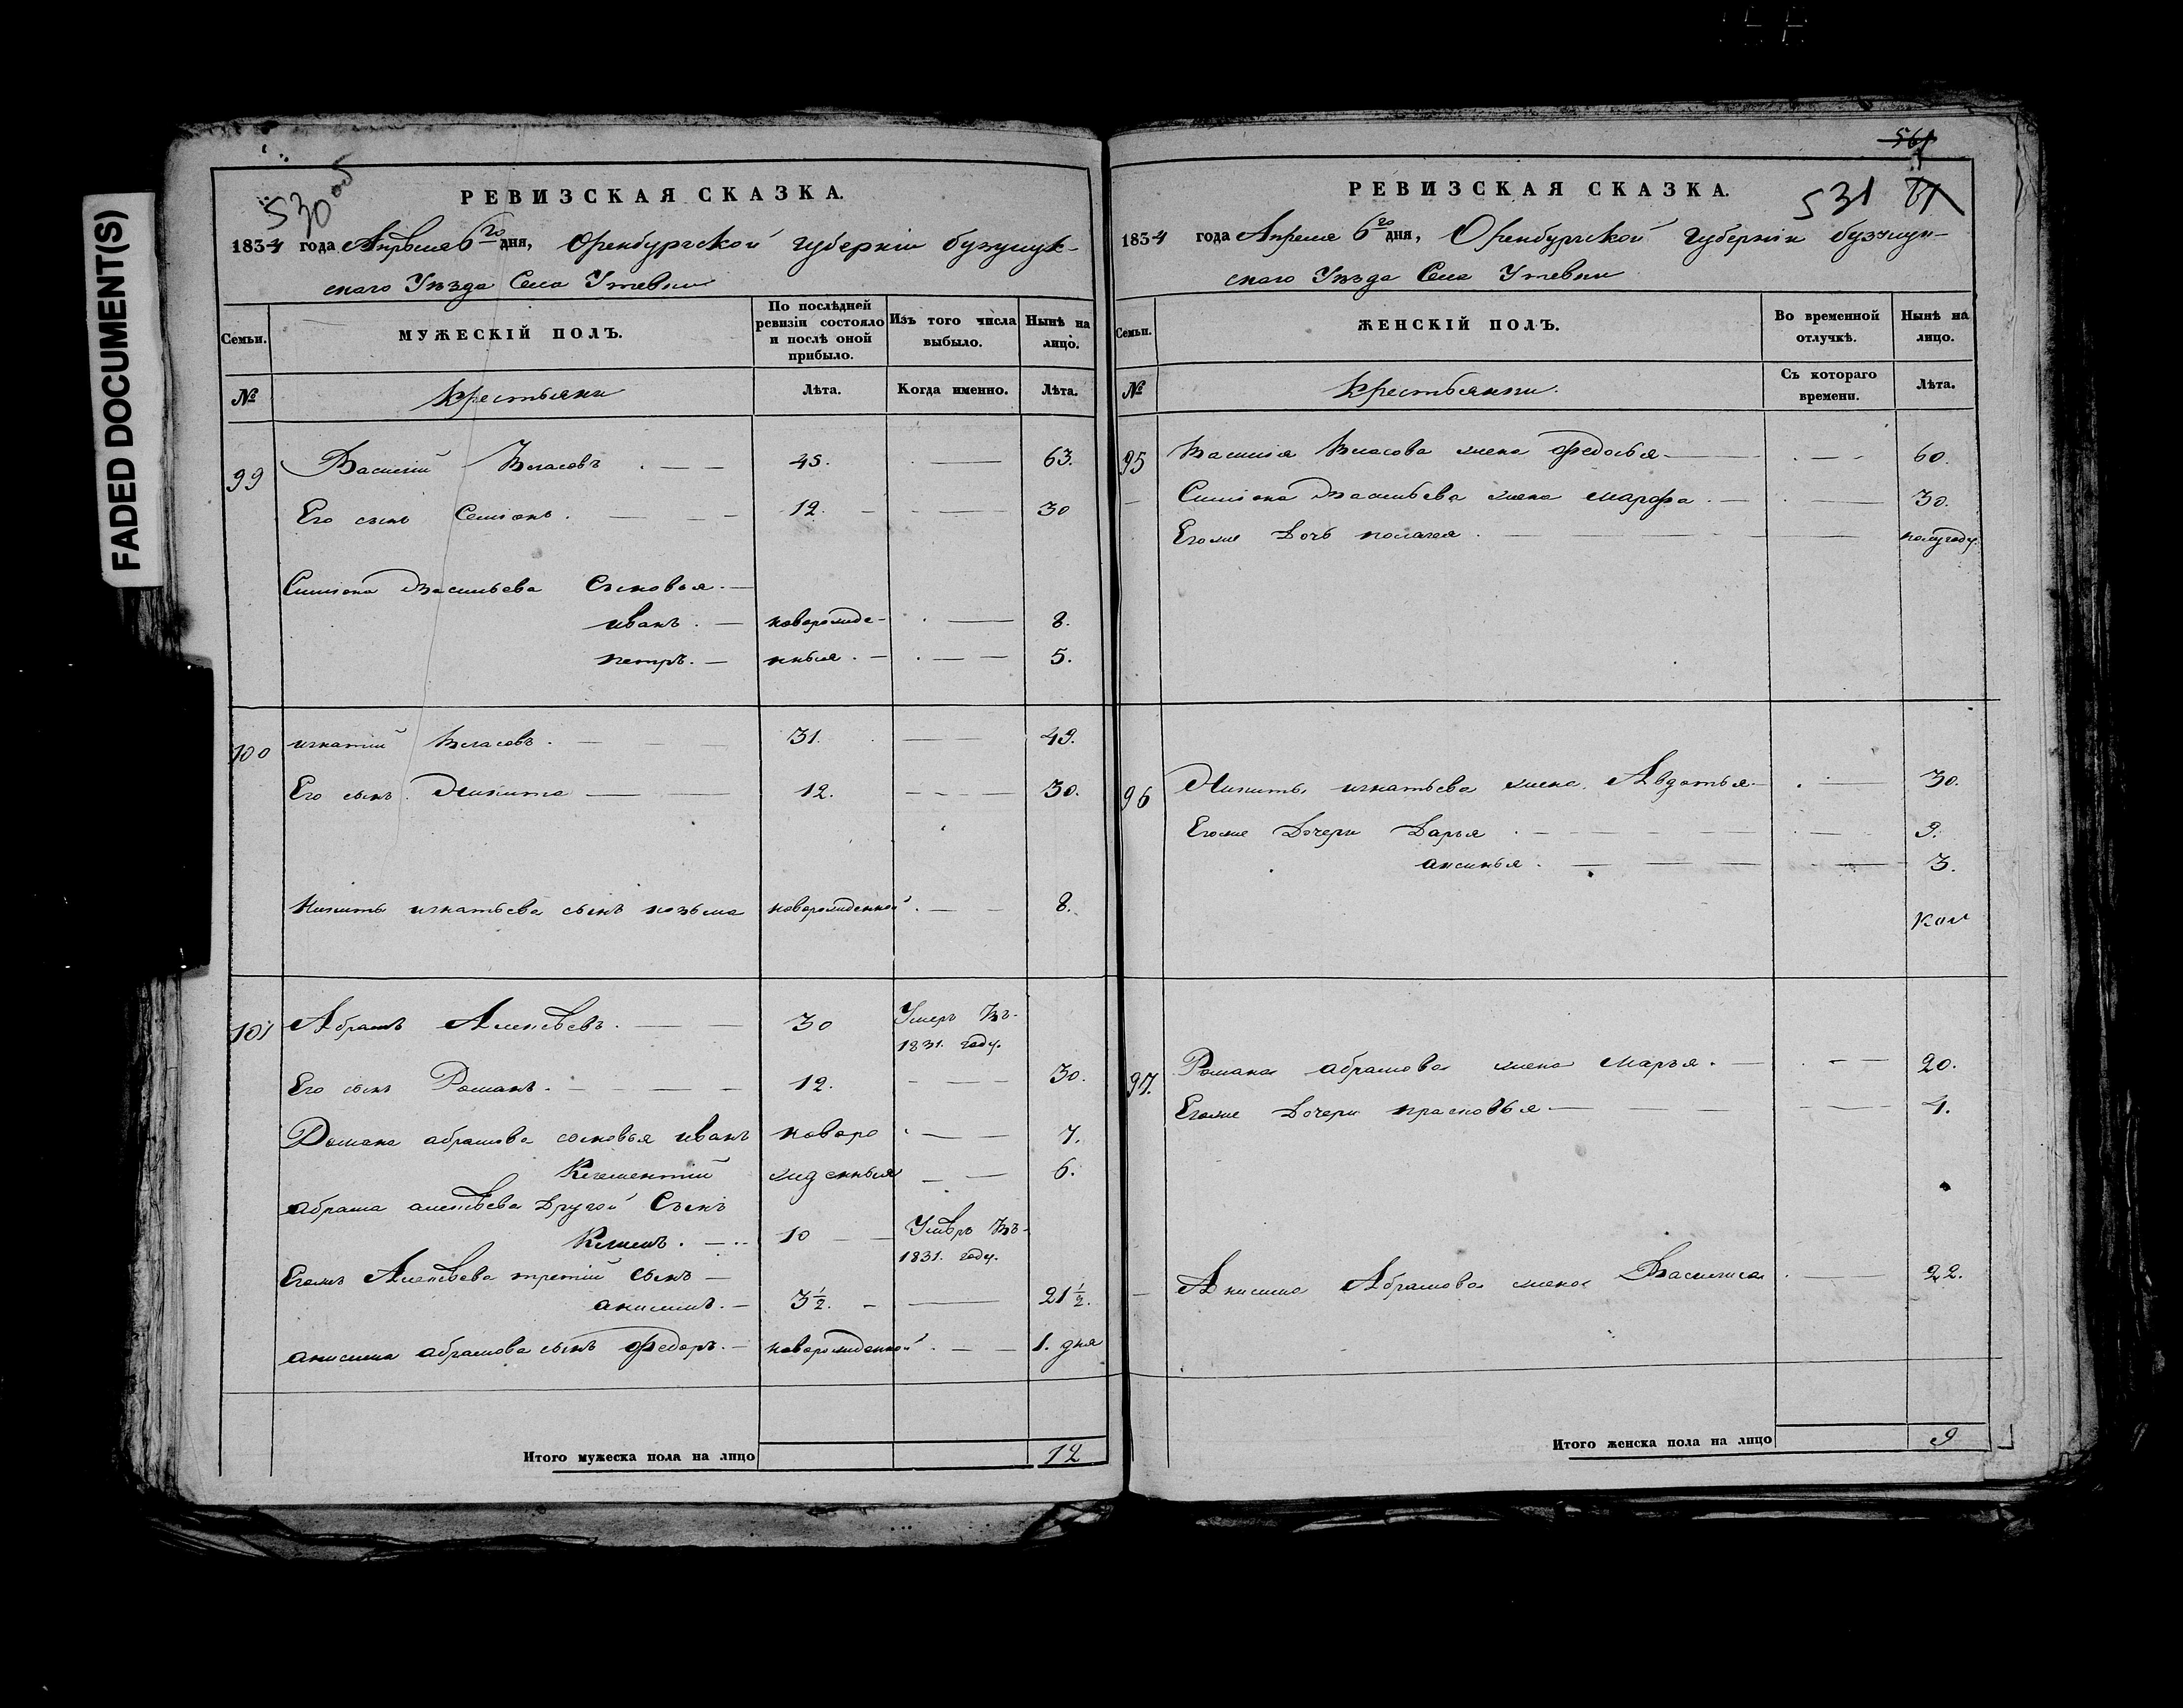 FADED DOCUMENT(S)
530 об
РЕВИЗСКАЯ СКАЗКА.
1834 года Апрѣля 6го дня, Оренбургской губерніи бузулук-
скаго Уѣзда Села Утевки
Семьи.
МУЖЕСКІЙ ПОЛЪ.
По послѣдней ревизіи состояло и послѣ оной прибыло.
Изъ того числа выбыло.
Нынѣ на лицо.
№
Крестьяни
Лѣта.
Когда именно.
Лѣта.
99 Василий Власовъ. 45. 63.
Его сынъ Семионъ. 12. 30
Симиона Васильева Сыновья.
иванъ. новорожде- 8.
петръ. нныя. 5.
100 игнатий Власовъ. 31. 49.
Его сынъ Никита 12. 30.
Никиты игнатьева сынъ козьма новорожденной. 8.
101 Абрамъ Алексѣевъ. 30 Умеръ Въ-
1831. году.
Его сынъ Романъ. 12. 30.
Романа абрамова сыновья иванъ новоро 7.
Клементий жденныя 6.
абрама алексѣева Другой Сынъ
Климъ. 10 Умѣръ Въ-
1831. году.
Егожъ Алексѣева третий сынъ
анисимъ. 3 1/2. 21 1/2.
анисима абрамова сынъ федоръ. новорожденной. 1. дня
Итого мужеска пола на лицо 12
561
531 71
РЕВИЗСКАЯ СКАЗКА.
1834 года Апреля 6го дня, Оренбургской губерніи бузулук-
скаго Уѣзда Села Утевки
Семьи.
ЖЕНСКІЙ ПОЛЪ.
Во временной отлучкѣ.
Нынѣ на лицо.
№
Крестьянки.
Съ котораго времени.
Лѣта.
95 Василия Власова жена Федосья 60.
Симиона Васильева жена марфа. 30.
Егоже Дочь полагея. полугоду.
96 Никиты игнатьева жена Авдотья 30.
Егоже Дочери Дарья. 9.
аксинья. 3.
97. Романа абрамова жена марья. 20.
Егоже Дочери прасковья 4.
Анисима Абрамова жена Василиса 22.
Итого женска пола на лицо 9